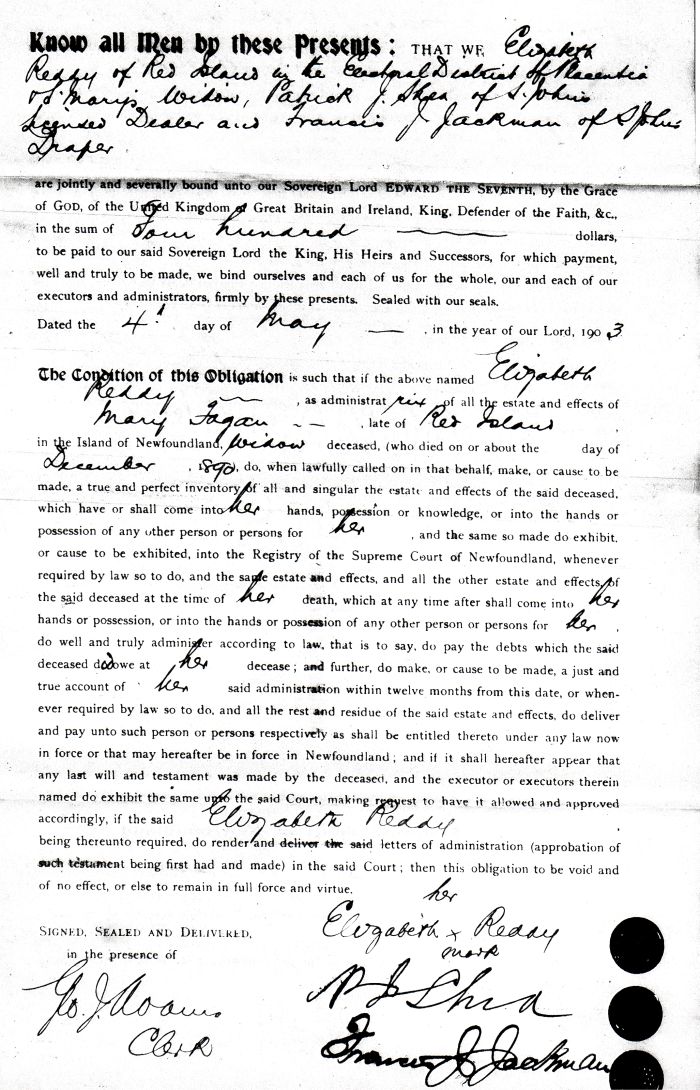 Know all Men by these Presents: THAT WE Elizabeth
Reddy of Red Island in the Electoral District of Placentia
& St Mary's Widow, Patrick J. Shea of St. John's
Licensed Dealer and Francis J Jackman of St John's
Draper
are jointly and severally bound unto our Sovereign Lord EDWARD THE SEVENTH, by the Grace
of GOD, of the United Kingdom of Great Britain and Ireland, King, Defender of the Faith, &c.,
in the sum of Four hundred dollars,
to be paid to our said Sovereign Lord the King, His Heirs and Successors, for which payment,
well and truly to be made, we bind ourselves and each of us for the whole, our and each of our
executors and administrators, firmly by these presents. Sealed with our seals.
Dated the 4th day of May , in the year of our Lord, 1903
The Condition of this Obligation is such that if the above named Elizabeth
Reddy , as administratrix of all the estate and effects of
Mary Fagan , late of Red Island ,
in the Island of Newfoundland, Widow deceased, (who died on or about the day of
December , 1890), do, when lawfully called on in that behalf, make, or cause to be
made, a true and perfect inventory of all and singular the estate and effects of the said deceased,
which have or shall come into her hands, possession or knowledge, or into the hands or
possession of any other person or persons for her , and the same so made do exhibit,
or cause to be exhibited, into the Registry of the Supreme Court of Newfoundland, whenever
required by law so to do, and the same estate and effects, and all the other estate and effects of
the said deceased at the time of her death, which at any time after shall come into her
hands or possession, or into the hands or possession of any other person or persons for her ,
do well and truly administer according to law, that is to say, do pay the debts which the said
deceased did owe at her decease; and further, do make, or cause to be made, a just and
true account of her said administration within twelve months from this date, or when-
ever required by law so to do, and all the rest and residue of the said estate and effects, do deliver
and pay unto such person or persons respectively as shall be entitled thereto under any law now
in force or that may hereafter be in force in Newfoundland; and if it shall hereafter appear that
any last will and testament was made by the deceased, and the executor or executors therein
named do exhibit the same unto the said Court, making request to have it allowed and approved
accordingly, if the said Elizabeth Reddy ,
being thereunto required, do render and deliver the said letters of administration (approbation of
such testament being first had and made) in the said Court; then this obligation to be void and
of no effect, or else to remain in full force and virtue.
her
SIGNED, SEALED AND DELIVERED, Elizabeth x Reddy
in the presence of mark
Geo. J. Adams P J Shea
Clerk Francis J. Jackman